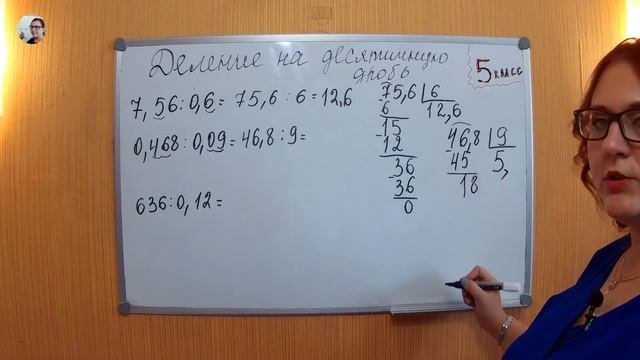 Деление на десятичную
дробь
5 класс
7,56:0,6= 75,6:6=12,6
0,468:0,09=46,8:9=
636:0,12=
75,6 6
6 12,6
15
12
36
36
0
46,8 9
45 5,
18